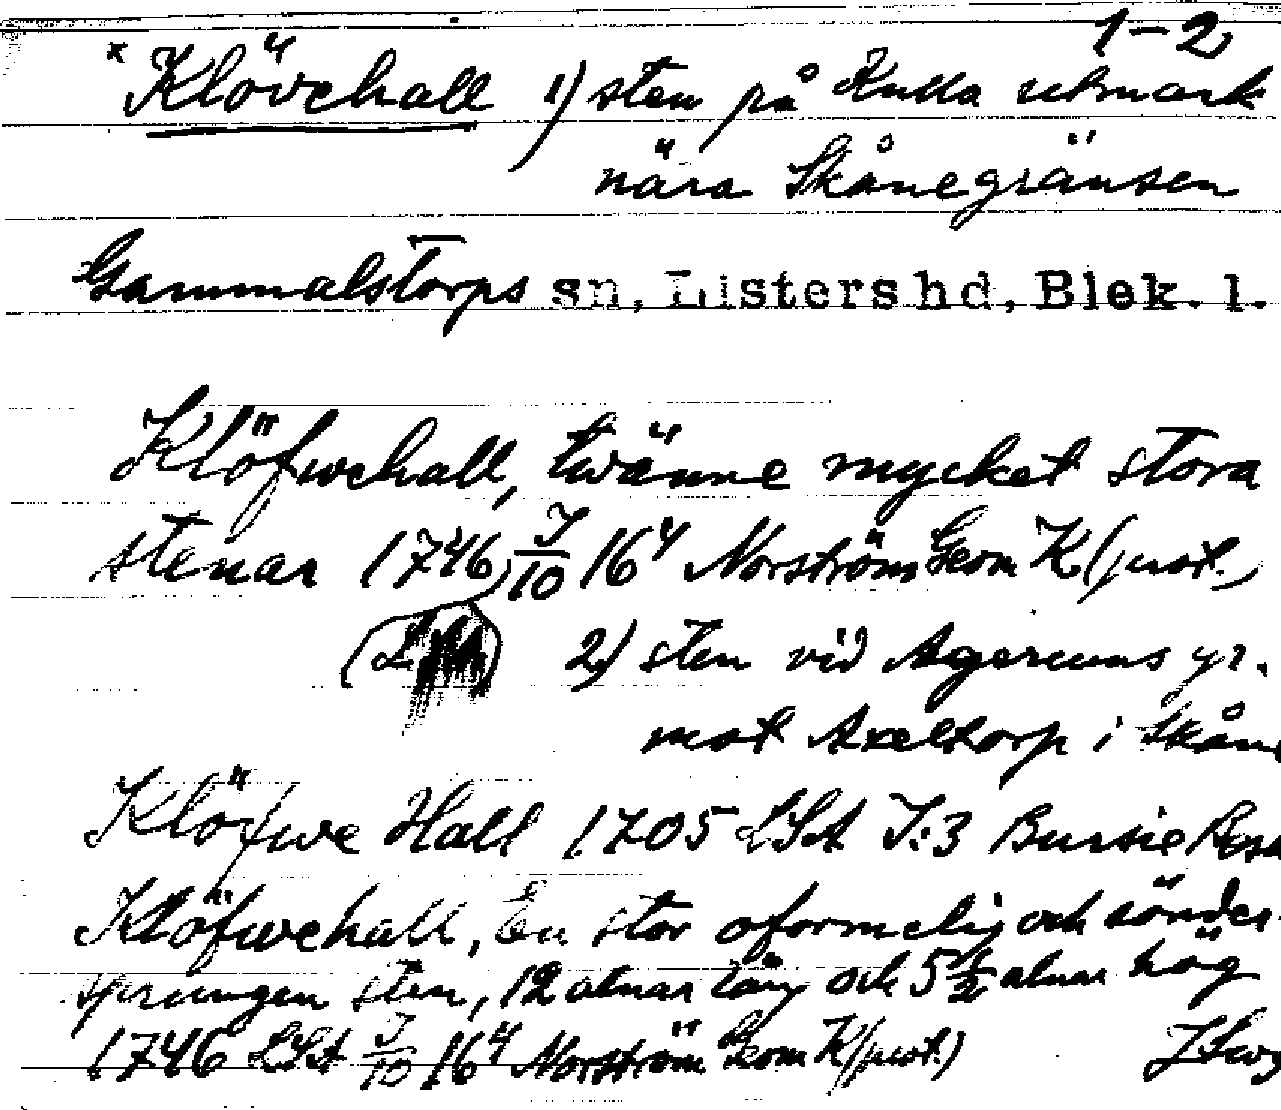 1-2
* Klövehall 1) sten på Kulla utmark
nära Skånegränsen
Gammalstorps sn, Listers hd, Blek. l.
Klöfwehall, twänne mycket stora
stenar 1746, I/10 16⁴ Norström Geom K (prot.)
2) sten vid Agerums gr.
mot Axeltorp i Skåne
Klöfwe Hall 1705 LSA I:3 Bursie
Klöfwehall, En stor oformelig och sönder-
sprungen sten, 12 alnar lång och 5 1/2 alnar hög
1746 LSA I/10 16⁴ Norström Geom K (prot.)